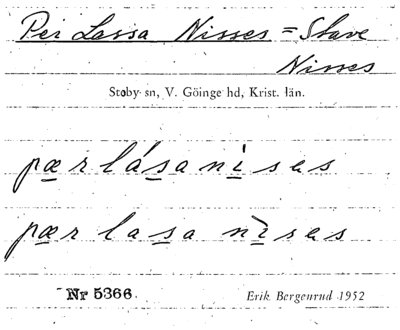 Per Lassa Nisses = Stave
Nisses
Stoby sn, V. Göinge hd, Krist. län.
pærlásanises
pær lasa nìses
Nr 5366. Erik Bergenrud 1952